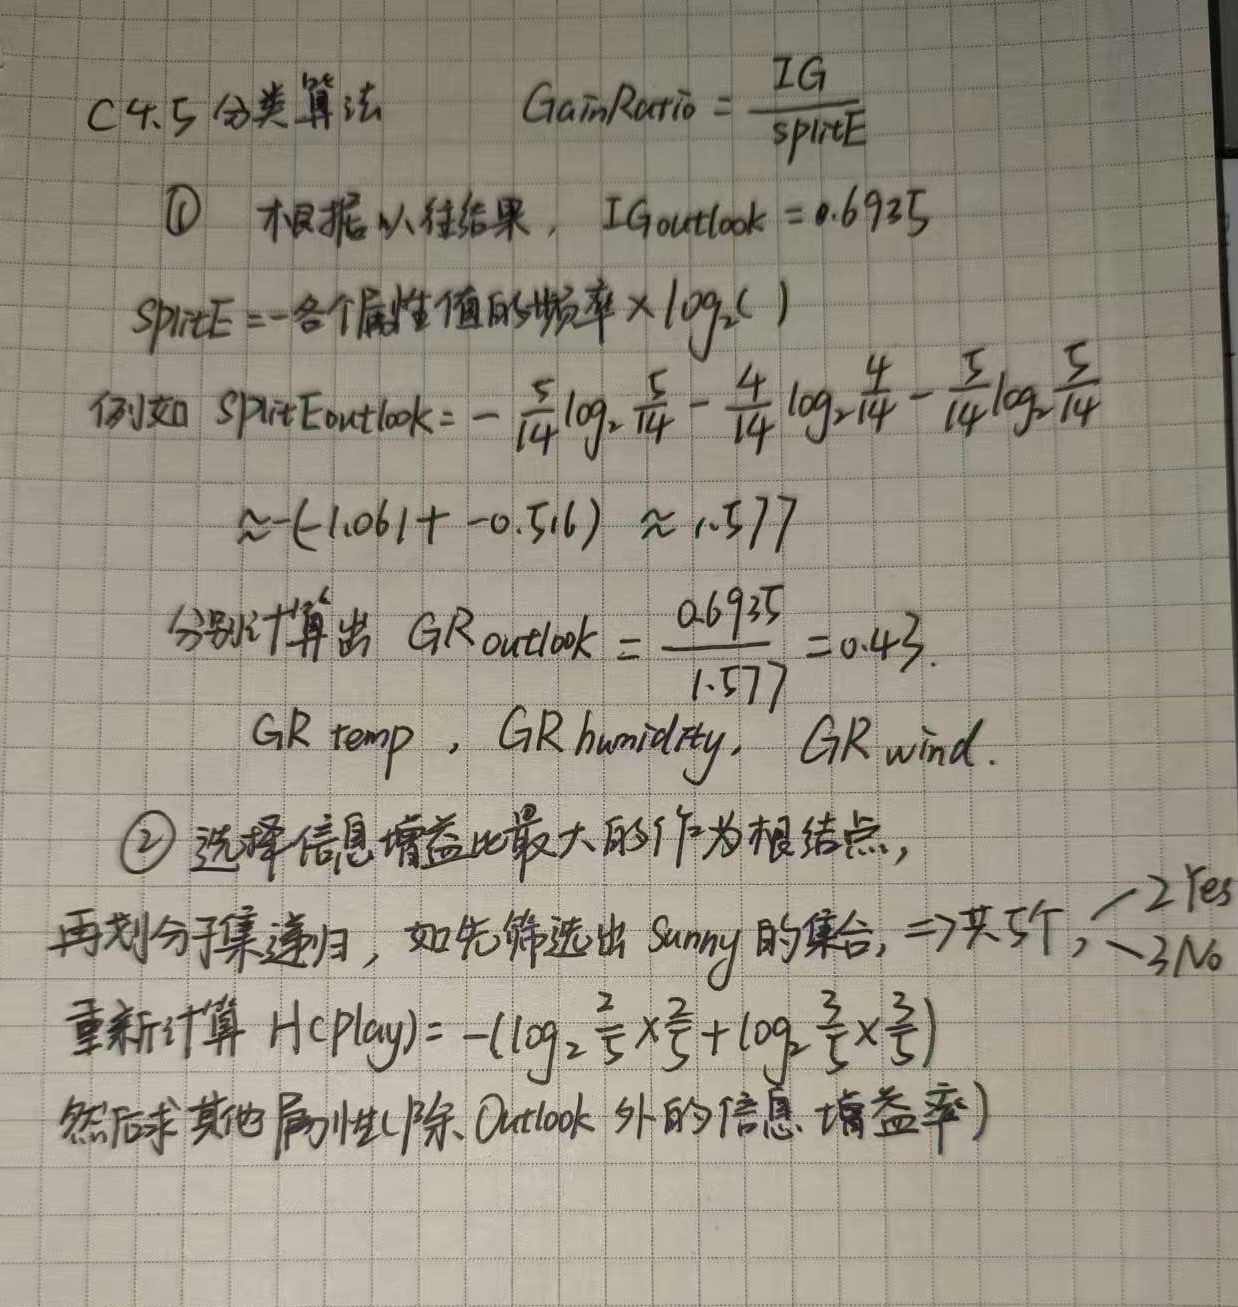 C4.5分类算法 GainRatio = IG / splitE
① 根据以往结果, IGoutlook = 0.6935
SplitE = -各个属性值的频率 × log₂( )
例如 SplitEoutlook = - 5/14 log₂ 5/14 - 4/14 log₂ 4/14 - 5/14 log₂ 5/14
≈ -(-1.061 + -0.516) ≈ 1.577
分别计算出 GRoutlook = 0.6935 / 1.577 = 0.43.
GR temp , GR humidity, GR wind.
② 选择信息增益比最大的作为根结点,
再划分子集递归, 如先筛选出 Sunny 的集合, => 共5个, 2 Yes
3 No
重新计算 H(Play) = -(log₂ 2/5 × 2/5 + log₂ 3/5 × 3/5)
然后求其他属性(除Outlook 外的信息增益率)